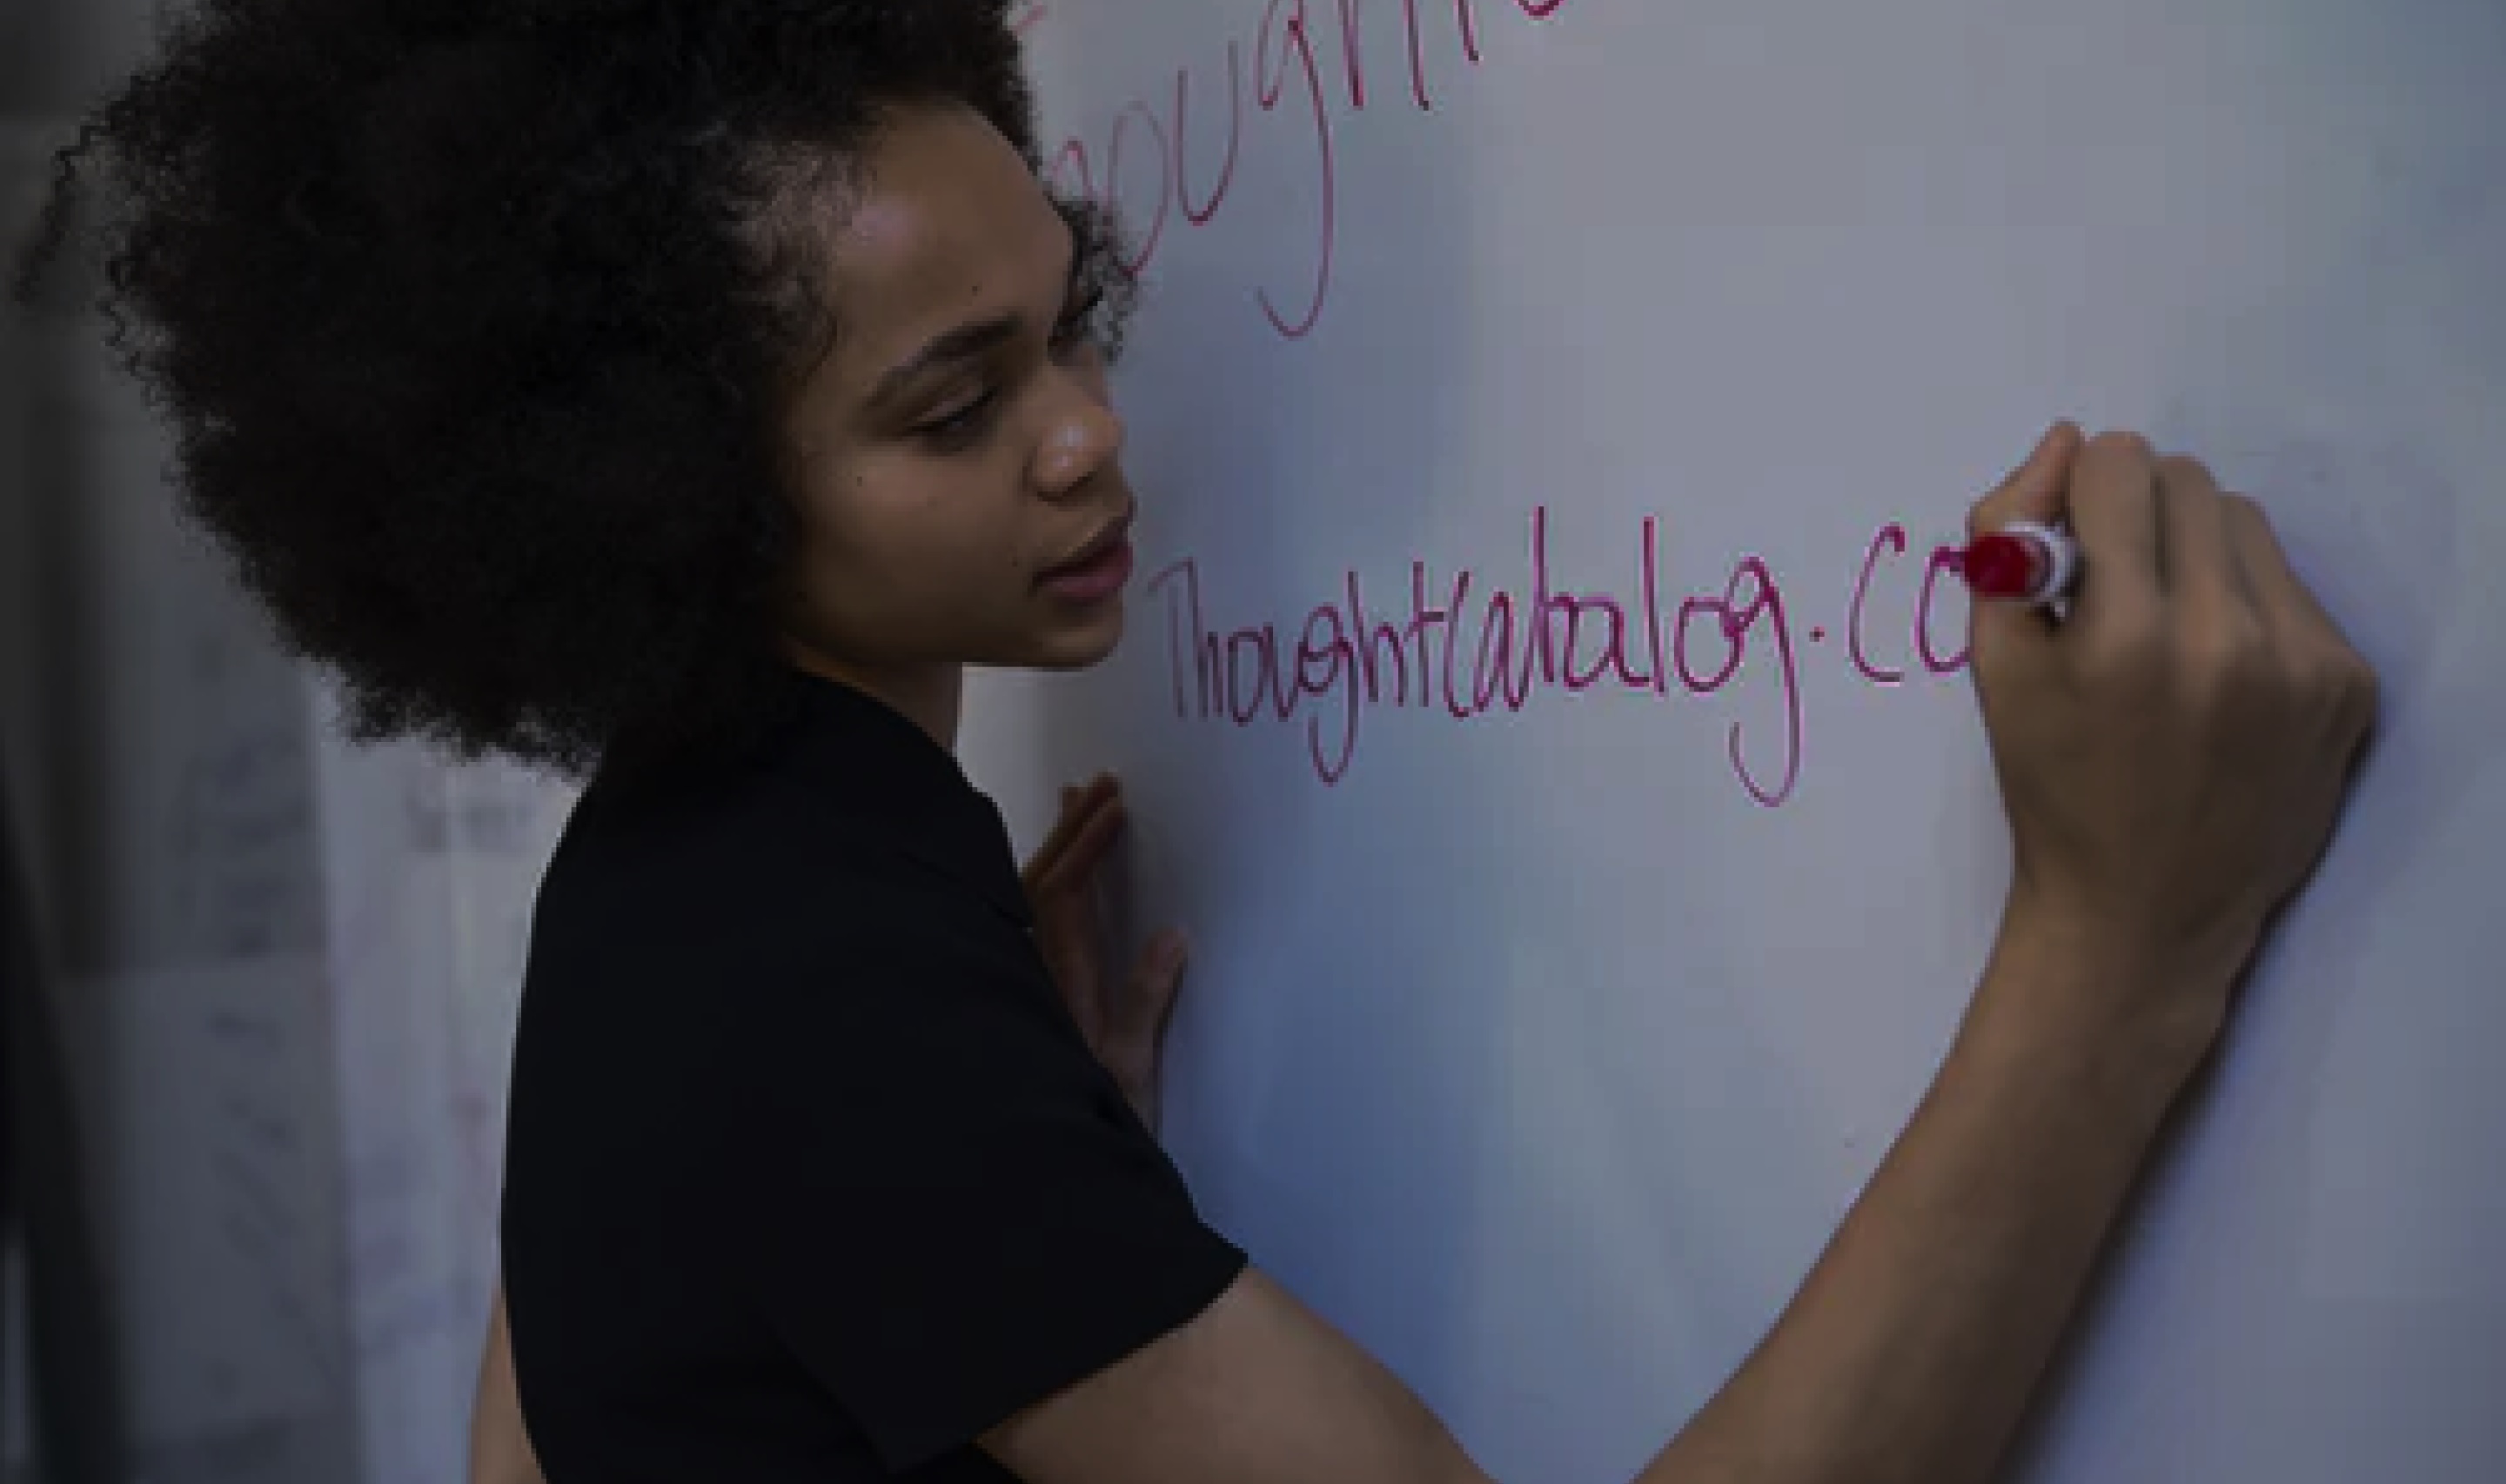 ought
Thoughtcatalog.co